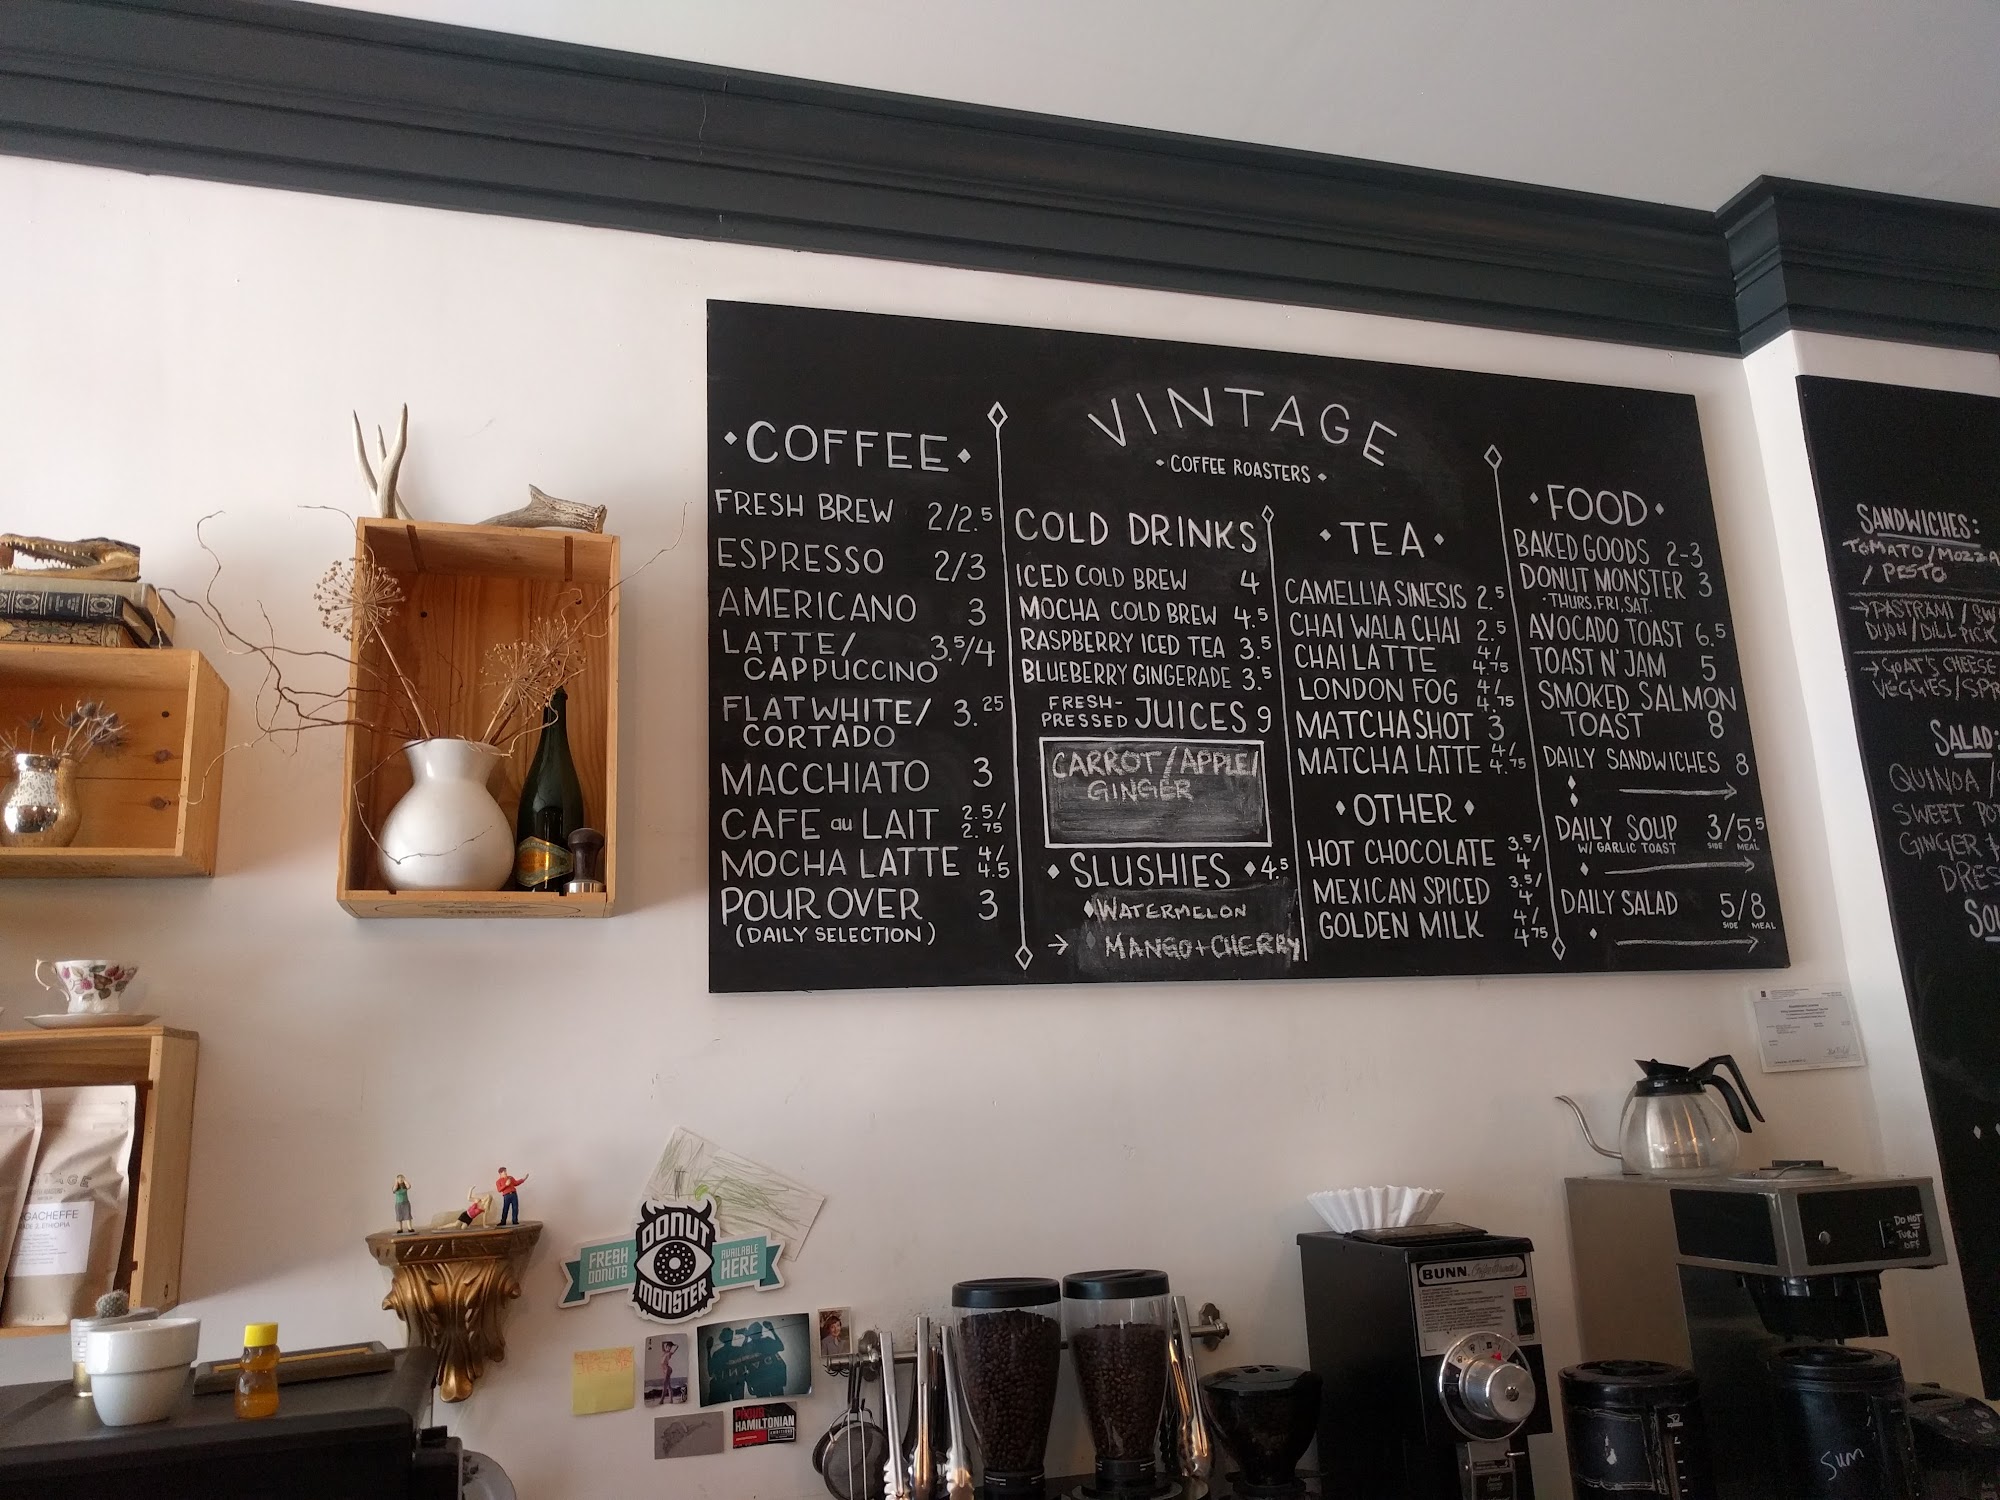 VINTAGE
• COFFEE ROASTERS •
• COFFEE •
FRESH BREW 2/2.5
ESPRESSO 2/3
AMERICANO 3
LATTE/ 3.5/4
CAPPUCCINO
FLAT WHITE/ 3.25
CORTADO
MACCHIATO 3
CAFE au LAIT 2.5/
2.75
MOCHA LATTE 4/
4.5
POUR OVER 3
(DAILY SELECTION)
COLD DRINKS
ICED COLD BREW 4
MOCHA COLD BREW 4.5
RASPBERRY ICED TEA 3.5
BLUEBERRY GINGERADE 3.5
FRESH-
PRESSED JUICES 9
CARROT/APPLE/
GINGER
• SLUSHIES • 4.5
WATERMELON
→ MANGO + CHERRY
• TEA •
CAMELLIA SINESIS 2.5
CHAI WALA CHAI 2.5
CHAI LATTE 4/
4.75
LONDON FOG 4/
4.75
MATCHA SHOT 3
MATCHA LATTE 4/
4.75
• OTHER •
HOT CHOCOLATE 3.5/
4
MEXICAN SPICED 3.5/
4
GOLDEN MILK 4/
4.75
• FOOD •
BAKED GOODS 2-3
DONUT MONSTER 3
• THURS. FRI. SAT.
AVOCADO TOAST 6.5
TOAST N' JAM 5
SMOKED SALMON
TOAST 8
DAILY SANDWICHES 8
DAILY SOUP 3/5.5
W/ GARLIC TOAST SIDE MEAL
DAILY SALAD 5/8
SIDE MEAL
SANDWICHES:
TOMATO/MOZZA
/ PESTO
→ PASTRAMI / SW
DIJON/DILL PICK
→ GOAT'S CHEESE
VEGGIES/SPR
SALAD:
QUINOA /
SWEET POT
GINGER
DRES
SOU
GACHEFFE
FRESH
DONUTS
DONUT
MONSTER
AVAILABLE
HERE
VINTAGE
PROUD
HAMILTONIAN
BUNN
DO NOT
TURN
OFF
Sum